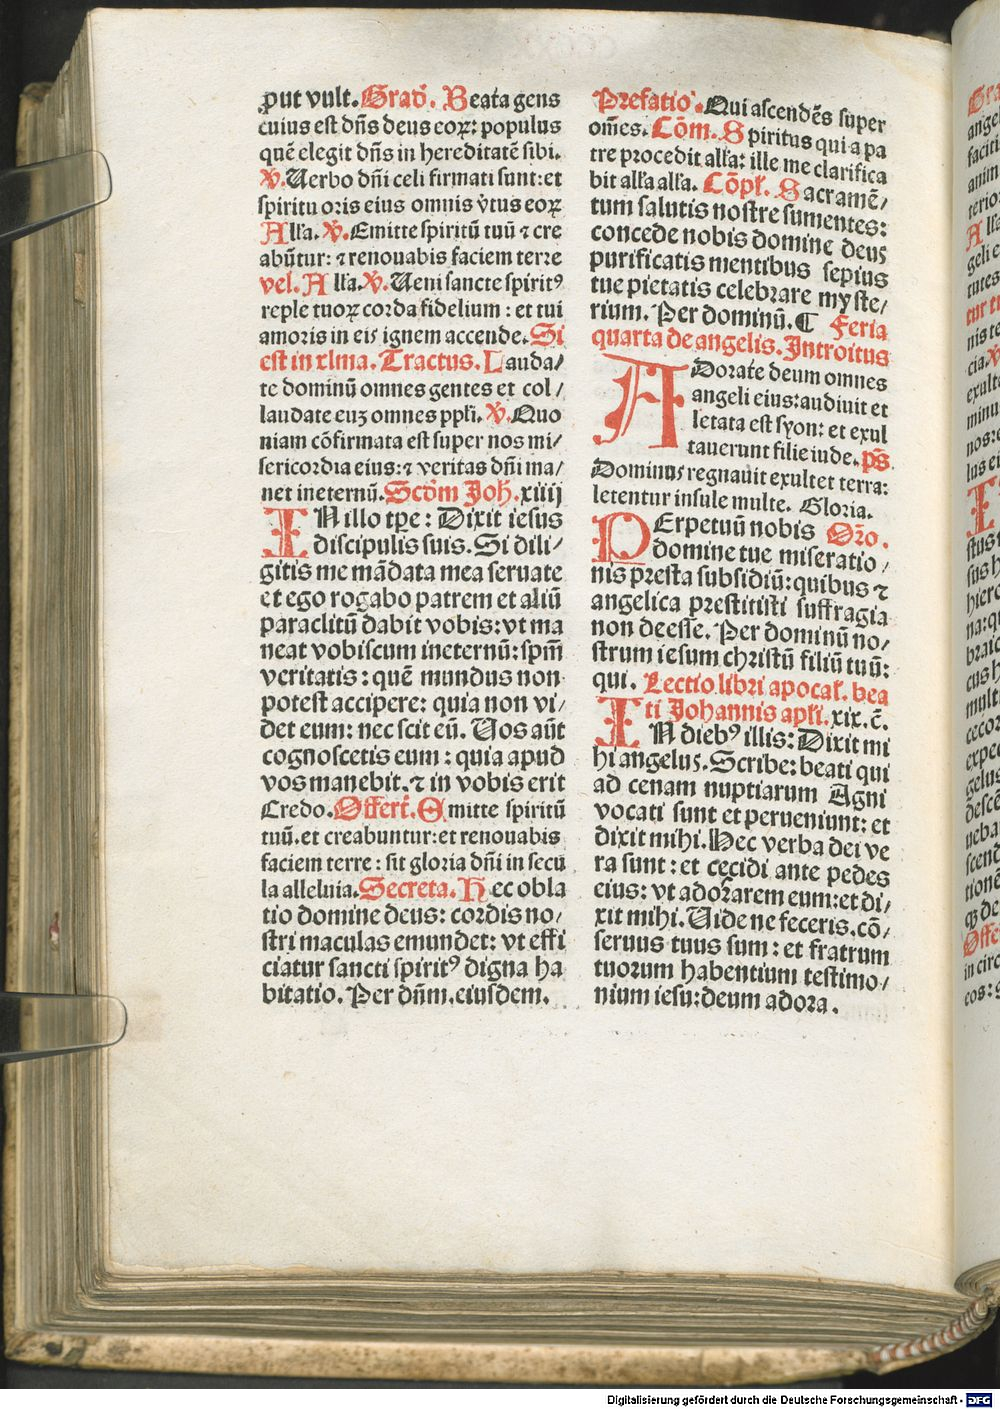 ꝓut vult. Grad̄. Beata gens
cuius est dn̄s deus eoꝝ: populus
quē elegit dn̄s in hereditatē sibi.
℣. Uerbo dn̄i celi firmati sunt: et
spiritu oris eius omnis v̓tus eoꝝ
Alľa. ℣. Emitte spiritū tuū ⁊ cre
abūtur: ⁊ renouabis faciem terre
vel. Alľa. ℣. Ueni sancte spiritꝰ
reple tuoꝝ corda fidelium: et tui
amoris in eis ignem accende. Si
est in xlma. Tractus. Lauda/
te dominū omnes gentes et col/
laudate euꝫ omnes ppľi. ℣. Quo
niam cōfirmata est super nos mi/
sericordia eius: ⁊ veritas dn̄i ma/
net ineternū. Scd̄m Joh̄. xiiij
IN illo tpe: Dixit iesus
discipulis suis. Si dili/
gitis me mādata mea seruate
et ego rogabo patrem et aliū
paraclitū dabit vobis: vt ma
neat vobiscum ineternū: spm̄
veritatis: quē mundus non
potest accipere: quia non vi/
det eum: nec scit eū. Uos aūt
cognoscetis eum: quia apud
vos manebit. ⁊ in vobis erit
Credo. Offert̄. Emitte spiritū
tuū. et creabuntur: et renouabis
faciem terre: sit gloria dn̄i in secu
la alleluia. Secreta. Hec obla
tio domine deus: cordis no/
stri maculas emundet: vt effi
ciatur sancti spiritꝰ digna ha
bitatio. Per dn̄m. eiusdem.
Prefatio. Qui ascendēs super
om̄es. Cōm. Spiritus qui a pa
tre procedit alľa: ille me clarifica
bit alľa alľa. Cōpľ. Sacramē/
tum salutis nostre sumentes:
concede nobis domine deus
purificatis mentibus sepius
tue pietatis celebrare myste/
rium. Per dominū. ¶ Feria
quarta de angelis. Introitus
ADorate deum omnes
angeli eius: audiuit et
letata est syon: et exul
tauerunt filie iude. ps̄
Dominus regnauit exultet terra:
letentur insule multe. Gloria.
PErpetuū nobis Or̄o.
domine tue miseratio/
nis presta subsidiū: quibus ⁊
angelica prestitisti suffragia
non deesse. Per dominū no/
strum iesum christū filiū tuū:
qui. Lectio libri apocaľ. bea
ti Johannis apľi. xix. c̄.
IN diebꝰ illis: Dixit mi
hi angelus. Scribe: beati qui
ad cenam nuptiarum Agni
vocati sunt et perueniunt: et
dixit mihi. Hec verba dei ve
ra sunt: et cecidi ante pedes
eius: vt adorarem eum: et di/
xit mihi. Uide ne feceris. cō/
seruus tuus sum: et fratrum
tuorum habentium testimo/
nium iesu: deum adora.
Gra
angel
faciti
anim
terio
Alľ
geli e
tutes
tur t
nis te
cia. ℣
exult
minu
nos: e
lus ei
I
stus
sus h
hiero
na: q
braic
cus h
mult
cecor
expec
gelus
descē
uebat
scend
tionē
qꝫ de
Offe
in circ
eos: e
Digitalisierung gefördert durch die Deutsche Forschungsgemeinschaft - DFG